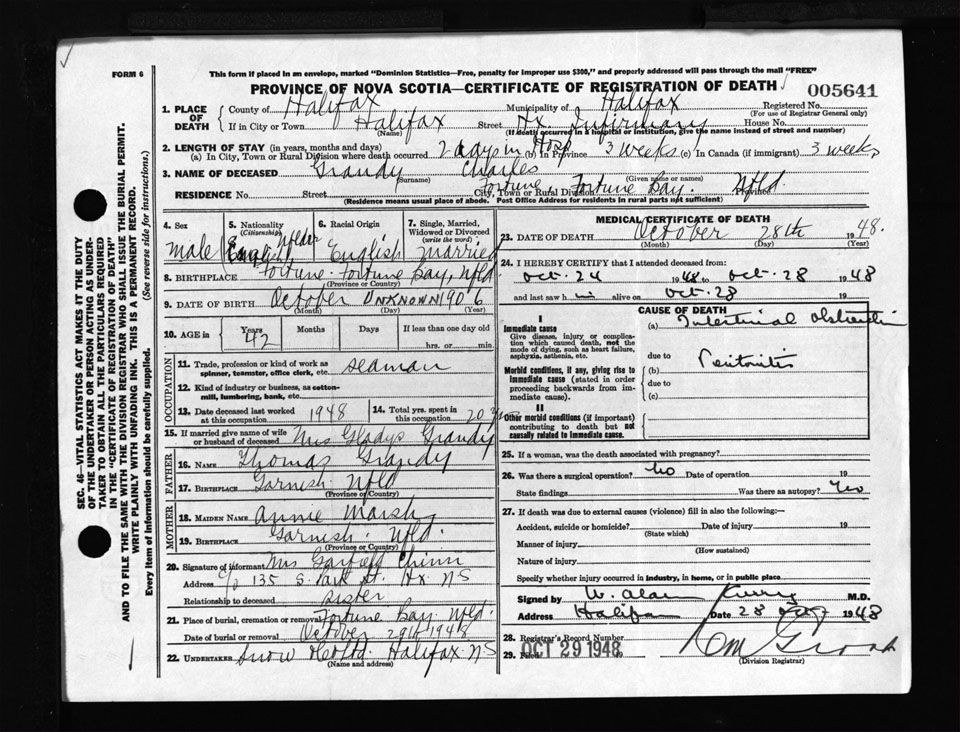 FORM 6
This form if placed in an envelope, marked "Dominion Statistics—Free, penalty for improper use $300," and properly addressed will pass through the mail "FREE"
PROVINCE OF NOVA SCOTIA—CERTIFICATE OF REGISTRATION OF DEATH
005641
1. PLACE OF DEATH
County of Halifax Municipality of Halifax Registered No.
(For use of Registrar General only)
If in City or Town Halifax Street Hx. Infirmary House No.
(Name) (If death occurred in a hospital or institution, give the name instead of street and number)
2. LENGTH OF STAY (in years, months and days)
(a) In City, Town or Rural Division where death occurred 2 days in Hosp (b) In Province 3 weeks (c) In Canada (if immigrant) 3 weeks
3. NAME OF DECEASED Grandy Charles
(Surname) (Given name or names)
RESIDENCE No. Street City, Town or Rural Division Fortune, Fortune Bay. Nfld.
(Residence means usual place of abode. Post Office Address for residents in rural parts not sufficient)
4. Sex male
5. Nationality (Citizenship) English
6. Racial Origin English
7. Single, Married, Widowed or Divorced (write the word) married
8. BIRTHPLACE Fortune. Fortune Bay, Nfld
(Province or Country)
9. DATE OF BIRTH October UNKNOWN 1906
(Month) (Day) (Year)
10. AGE in Years 42 Months Days If less than one day
hrs. or min.
OCCUPATION
11. Trade, profession or kind of work as spinner, teamster, office clerk, etc. seaman
12. Kind of industry or business, as cotton-mill, lumbering, bank, etc.
13. Date deceased last worked at this occupation 1948
14. Total yrs. spent in this occupation 20 yrs
15. If married give name of wife or husband of deceased Mrs Gladys Grandy
FATHER
16. NAME Thomas Grandy
17. BIRTHPLACE Garnish. Nfld
(Province or Country)
MOTHER
18. MAIDEN NAME Annie Marsh
19. BIRTHPLACE Garnish. Nfld.
(Province or Country)
20. Signature of informant Mrs. Garfield Chinn
Address c/o 135 S. Park St. Hx. NS
Relationship to deceased sister
21. Place of burial, cremation or removal Fortune Bay. Nfld.
Date of burial or removal October 29th 1948
22. UNDERTAKER Snow Halifax. NS
(Name and address)
MEDICAL CERTIFICATE OF DEATH
23. DATE OF DEATH October 28th 1948.
(Month) (Day) (Year)
24. I HEREBY CERTIFY that I attended deceased from:
Oct. 24 1948 to Oct. 28 1948
and last saw him alive on Oct. 28 19
CAUSE OF DEATH
I
Immediate cause
Give disease, injury or complication which caused death, not the mode of dying, such as heart failure, asphyxia, asthenia, etc.
(a) Intestinal obstruction
due to
Morbid conditions, if any, giving rise to immediate cause (stated in order proceeding backwards from immediate cause).
(b) Peritonitis
due to
(c)
II
Other morbid conditions (if important) contributing to death but not causally related to immediate cause.
25. If a woman, was the death associated with pregnancy?
26. Was there a surgical operation? no Date of operation 19
State findings Was there an autopsy?
27. If death was due to external causes (violence) fill in also the following:—
Accident, suicide or homicide? Date of injury 19
(State which)
Manner of injury
(How sustained)
Nature of injury
Specify whether injury occurred in industry, in home, or in public place
Signed by W. Alan M.D.
Address Halifax Date 28 Oct 1948
28. Registrar's Record Number
29. Filed OCT 29 1948
(Division Registrar)
SEC. 46—VITAL STATISTICS ACT MAKES IT THE DUTY
OF THE UNDERTAKER OR PERSON ACTING AS UNDER-
TAKER TO OBTAIN ALL THE PARTICULARS REQUIRED
IN THE "CERTIFICATE OF REGISTRATION OF DEATH"
AND TO FILE THE SAME WITH THE DIVISION REGISTRAR WHO SHALL ISSUE THE BURIAL PERMIT.
WRITE PLAINLY WITH UNFADING INK. THIS IS A PERMANENT RECORD.
Every item of information should be carefully supplied. (See reverse side for instructions.)